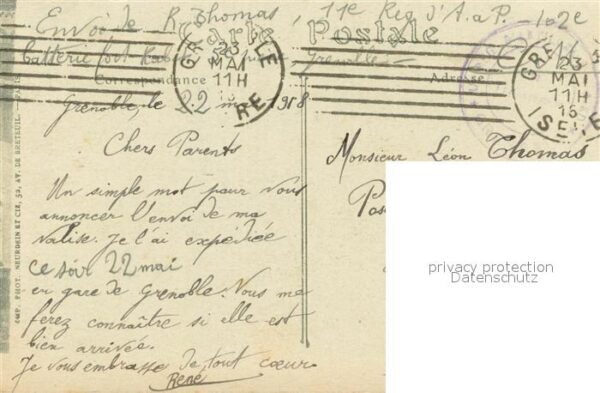 Envoi de R Thomas, 11e Reg d'A.a P. 102e
Carte Postale
Batterie fort
Grenoble
Correspondance
Adresse
GRENOBLE
23
MAI
11H
RE
GRE
23
MAI
11H
16
ISERE
Grenoble, le 22 mai 1918
Chers Parents
Un simple mot pour vous
annoncer l'envoi de ma
valise. Je l'ai expédiée
ce soir 22 mai
en gare de Grenoble. Vous me
ferez connaître si elle est
bien arrivée.
Je vous embrasse de tout cœur
René
Monsieur Léon Thomas
Pos
IMP. PHOT. NEURDEIN ET CIE, 52, AV. DE BRETEUIL. - PARIS
privacy protection
Datenschutz